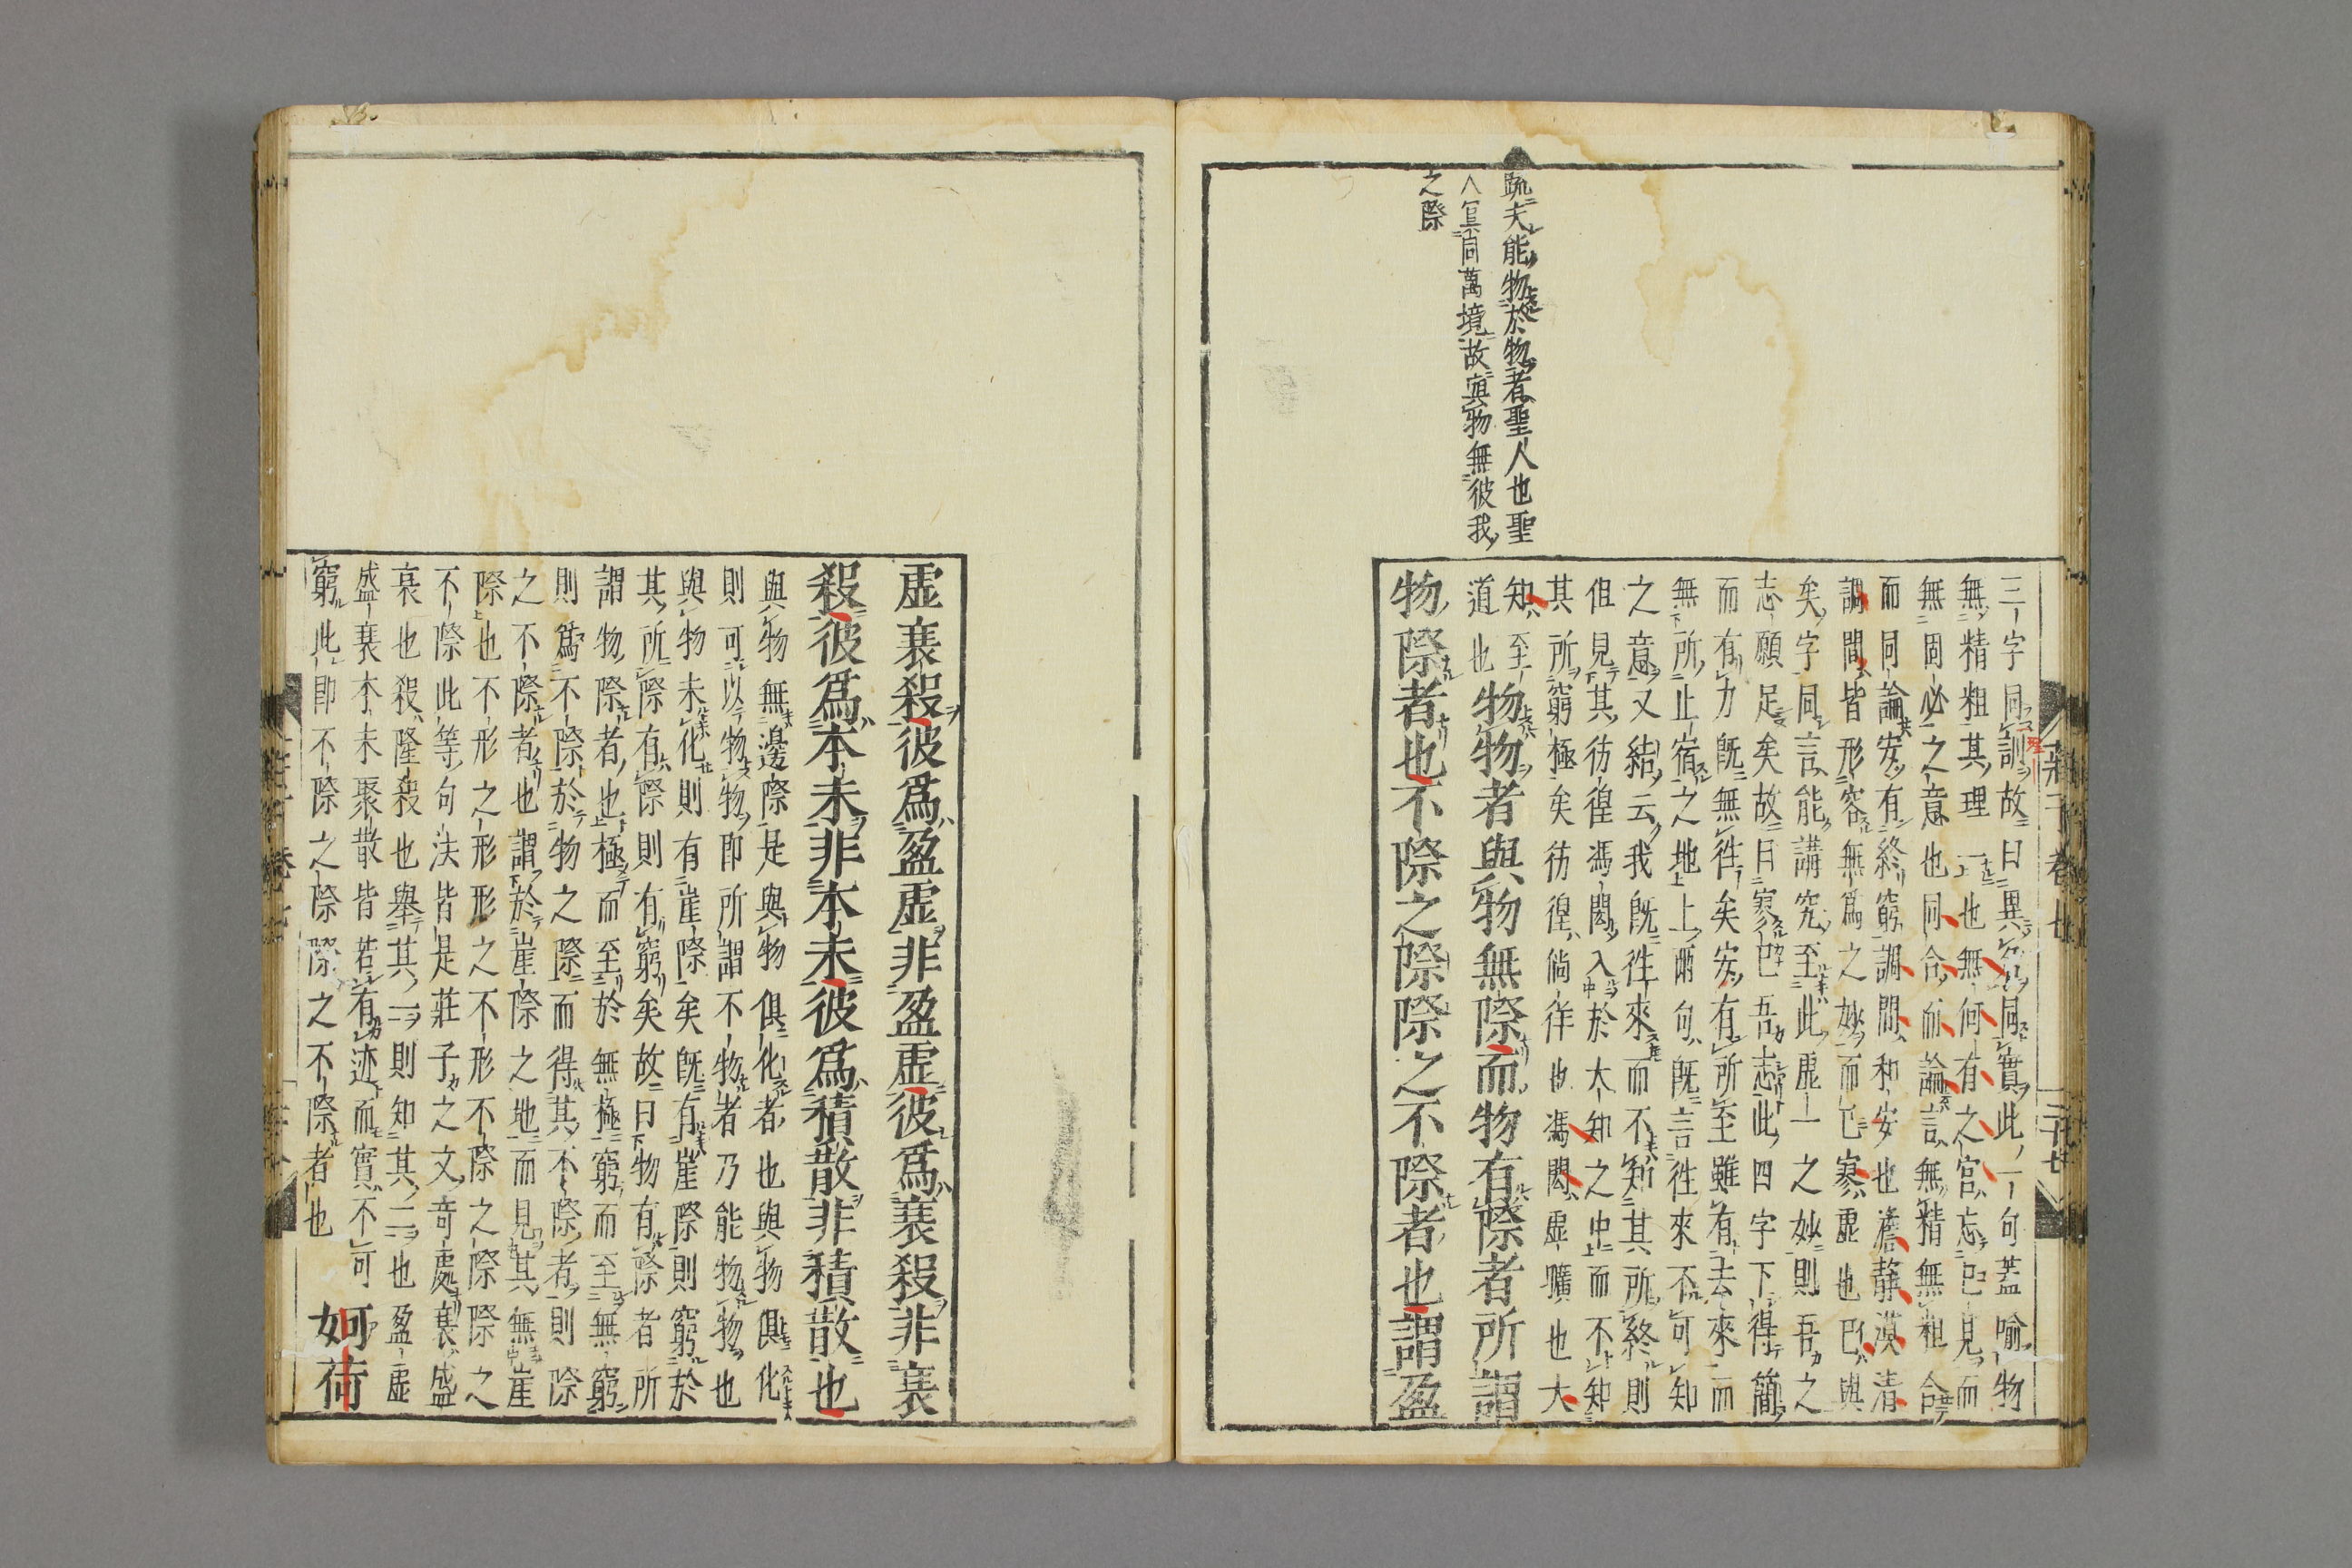 疏夫能物於物者聖人也聖
人冥同萬境故與物無彼我
之際
莊子 卷七
三字同訓故曰異名同實此一句蓋喻物
無精粗其理一也無何有之宮忘已見而
無固必之意也同合而論言無精無粗合
而同論安有終窮調間和安也澹靜漠清
調間皆形容無爲之妙而已寥虛也已與
矣字同言能講究至此虛一之妙則吾之
志願足矣故曰寥已吾志此四字下得簡
而有力既無徃矣安有所至雖有去來而
無所止宿之地上兩句既言徃來不可知
之意又結云我既徃來而不知其所終則
但見其彷徨馮閎入於大知之中而不知
其所窮極矣彷徨徜徉也馮閎虛曠也大
知至
道也
物物者與物無際而物有際者所謂
物際者也不際之際際之不際者也謂盈
虛衰殺彼爲盈虛非盈虛彼爲衰殺非衰
殺彼爲本末非本末彼爲積散非積散也
與物無邊際是與物俱化者也與物俱化
則可以物物即所謂不物者乃能物物也
與物未化則有崖際矣既有崖際則窮於
其所際有際則有窮矣故曰物有際者所
謂物際者也極而至於無極窮而至無窮
則爲不際於物之際而得其不際者則際
之不際者也謂於崖際之地而見其無崖
際也不形之形形之不形不際之際際之
不際此等句法皆是莊子之文奇處衰盛
衰也殺隆殺也舉其一則知其二也盈虛
盛衰本末聚散皆若有迹而實不可
窮此即不際之際際之不際者也
妸荷